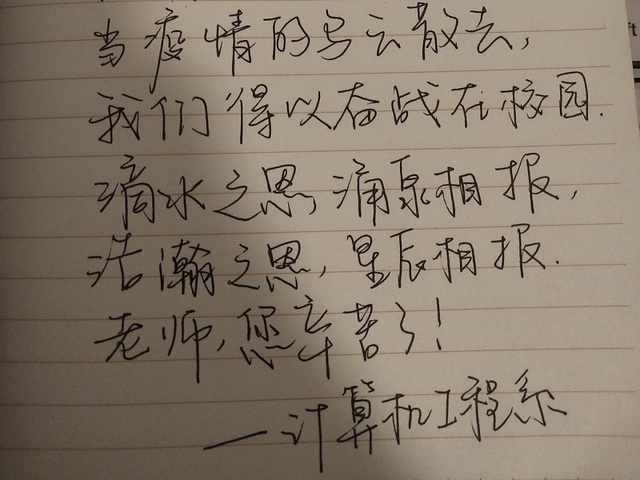 当疫情的乌云散去，
我们得以奋战在校园.
滴水之恩，涌泉相报，
浩瀚之恩，星辰相报.
老师，您辛苦了！
—计算机工程系